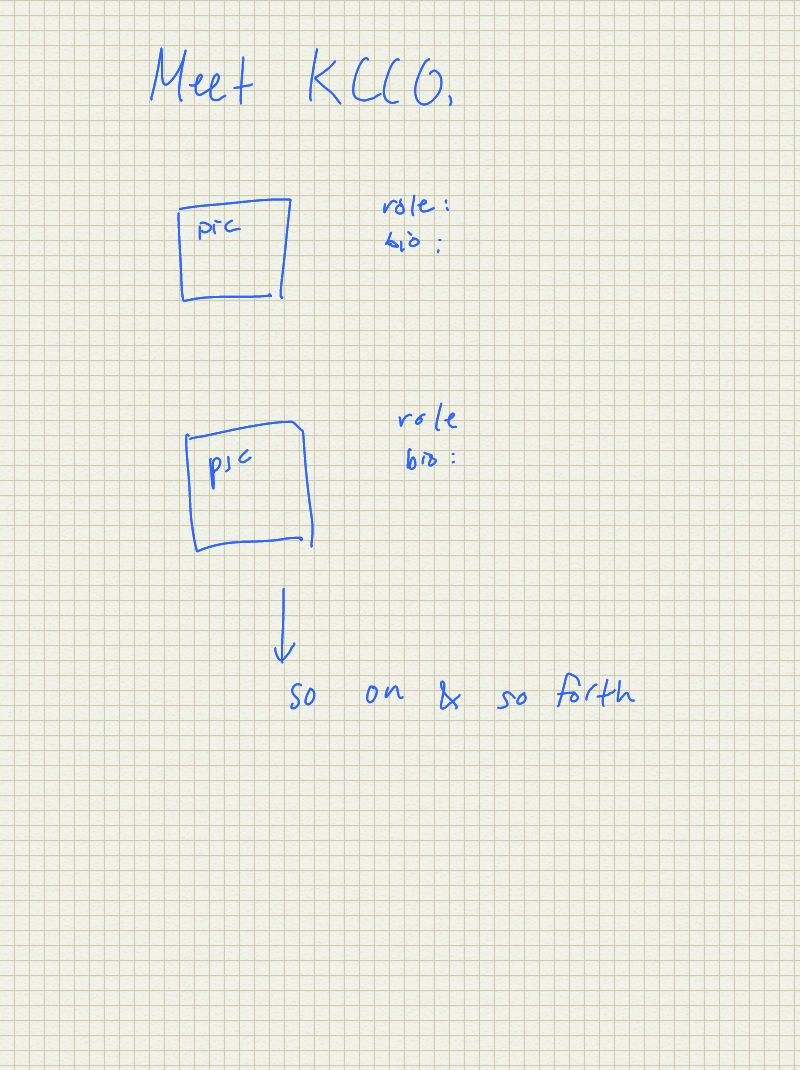 Meet KCCO.
pic
role:
bio:
pic
role
bio:
so on & so forth